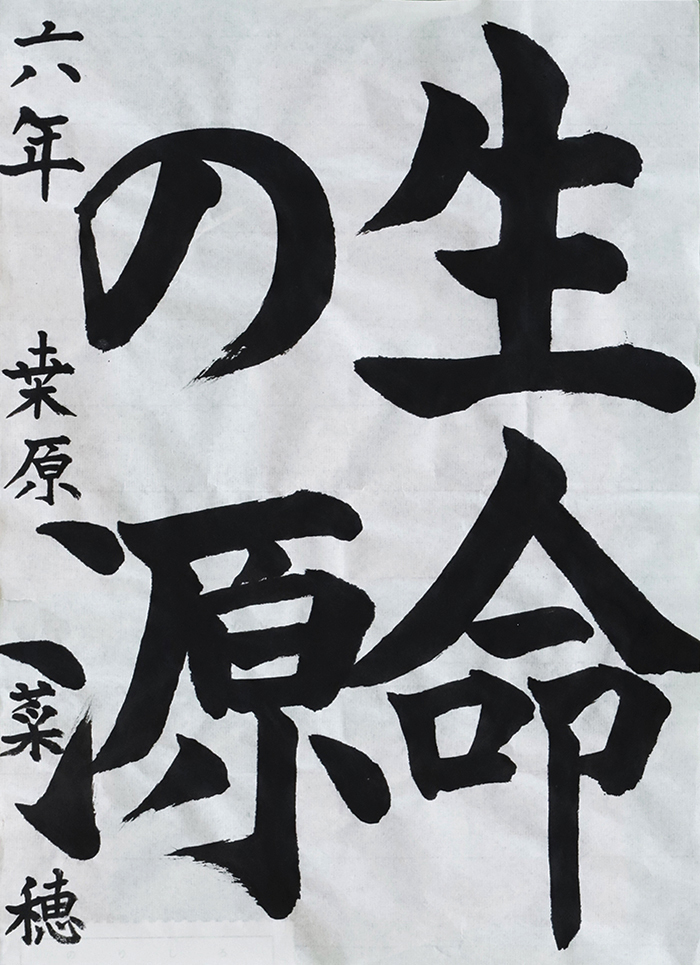 生命
の源
六年 桒原 菜穂